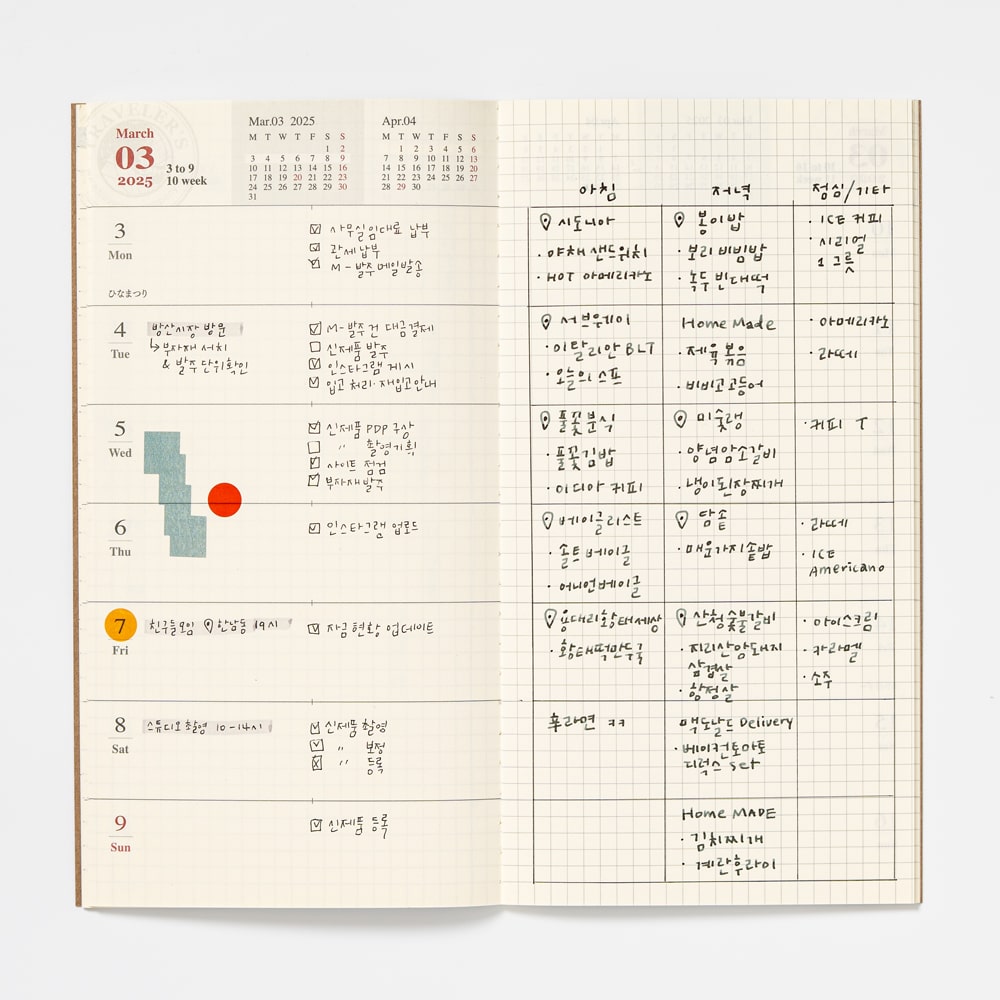 TRAVELER'S
March
03
2025
3 to 9
10 week
Mar.03 2025
M T W T F S S
1 2
3 4 5 6 7 8 9
10 11 12 13 14 15 16
17 18 19 20 21 22 23
24 25 26 27 28 29 30
31
Apr.04
M T W T F S S
1 2 3 4 5 6
7 8 9 10 11 12 13
14 15 16 17 18 19 20
21 22 23 24 25 26 27
28 29 30
3
Mon
ひなまつり
사무실임대료 납부
관세납부
M-발주메일발송
4
Tue
방산시장 방문
↳부자재 서치
& 발주 단위확인
M-발주건 대금결제
신제품 발주
인스타그램 게시
입고 처리·재입고안내
5
Wed
신제품 PDP 구상
〃 촬영기획
사이트 점검
부자재발주
6
Thu
인스타그램 업로드
7
Fri
친구들모임 한남동 19시
자금현황 업데이트
8
Sat
스튜디오촬영 10-14시
신제품촬영
〃 보정
〃 등록
9
Sun
신제품 등록
아침 저녁 점심/기타
시도니아
·야채샌드위치
·HOT 아메리카노
봉이밥
·보리비빔밥
·녹두빈대떡
·ICE 커피
·시리얼
1그릇
서브웨이
·이탈리안BLT
·오늘의스프
Home Made
·제육볶음
·비비고고등어
·아메리카노
·라떼
풀꽃분식
·풀꽃김밥
·이디아 커피
미숫랭
·양념암소갈비
·냉이된장찌개
·커피 T
베이글리스트
·솔트베이글
·어니언베이글
담솥
·매운가지솥밥
·라떼
·ICE
Americano
용대리황태세상
·황태떡만두국
산청숯불갈비
·지리산암퇘지
삼겹살
·항정살
·아이스크림
·카라멜
·소주
후라면 ㅋㅋ
맥도날드 Delivery
·베이컨토마토
디럭스 set
Home MADE
·김치찌개
·계란후라이